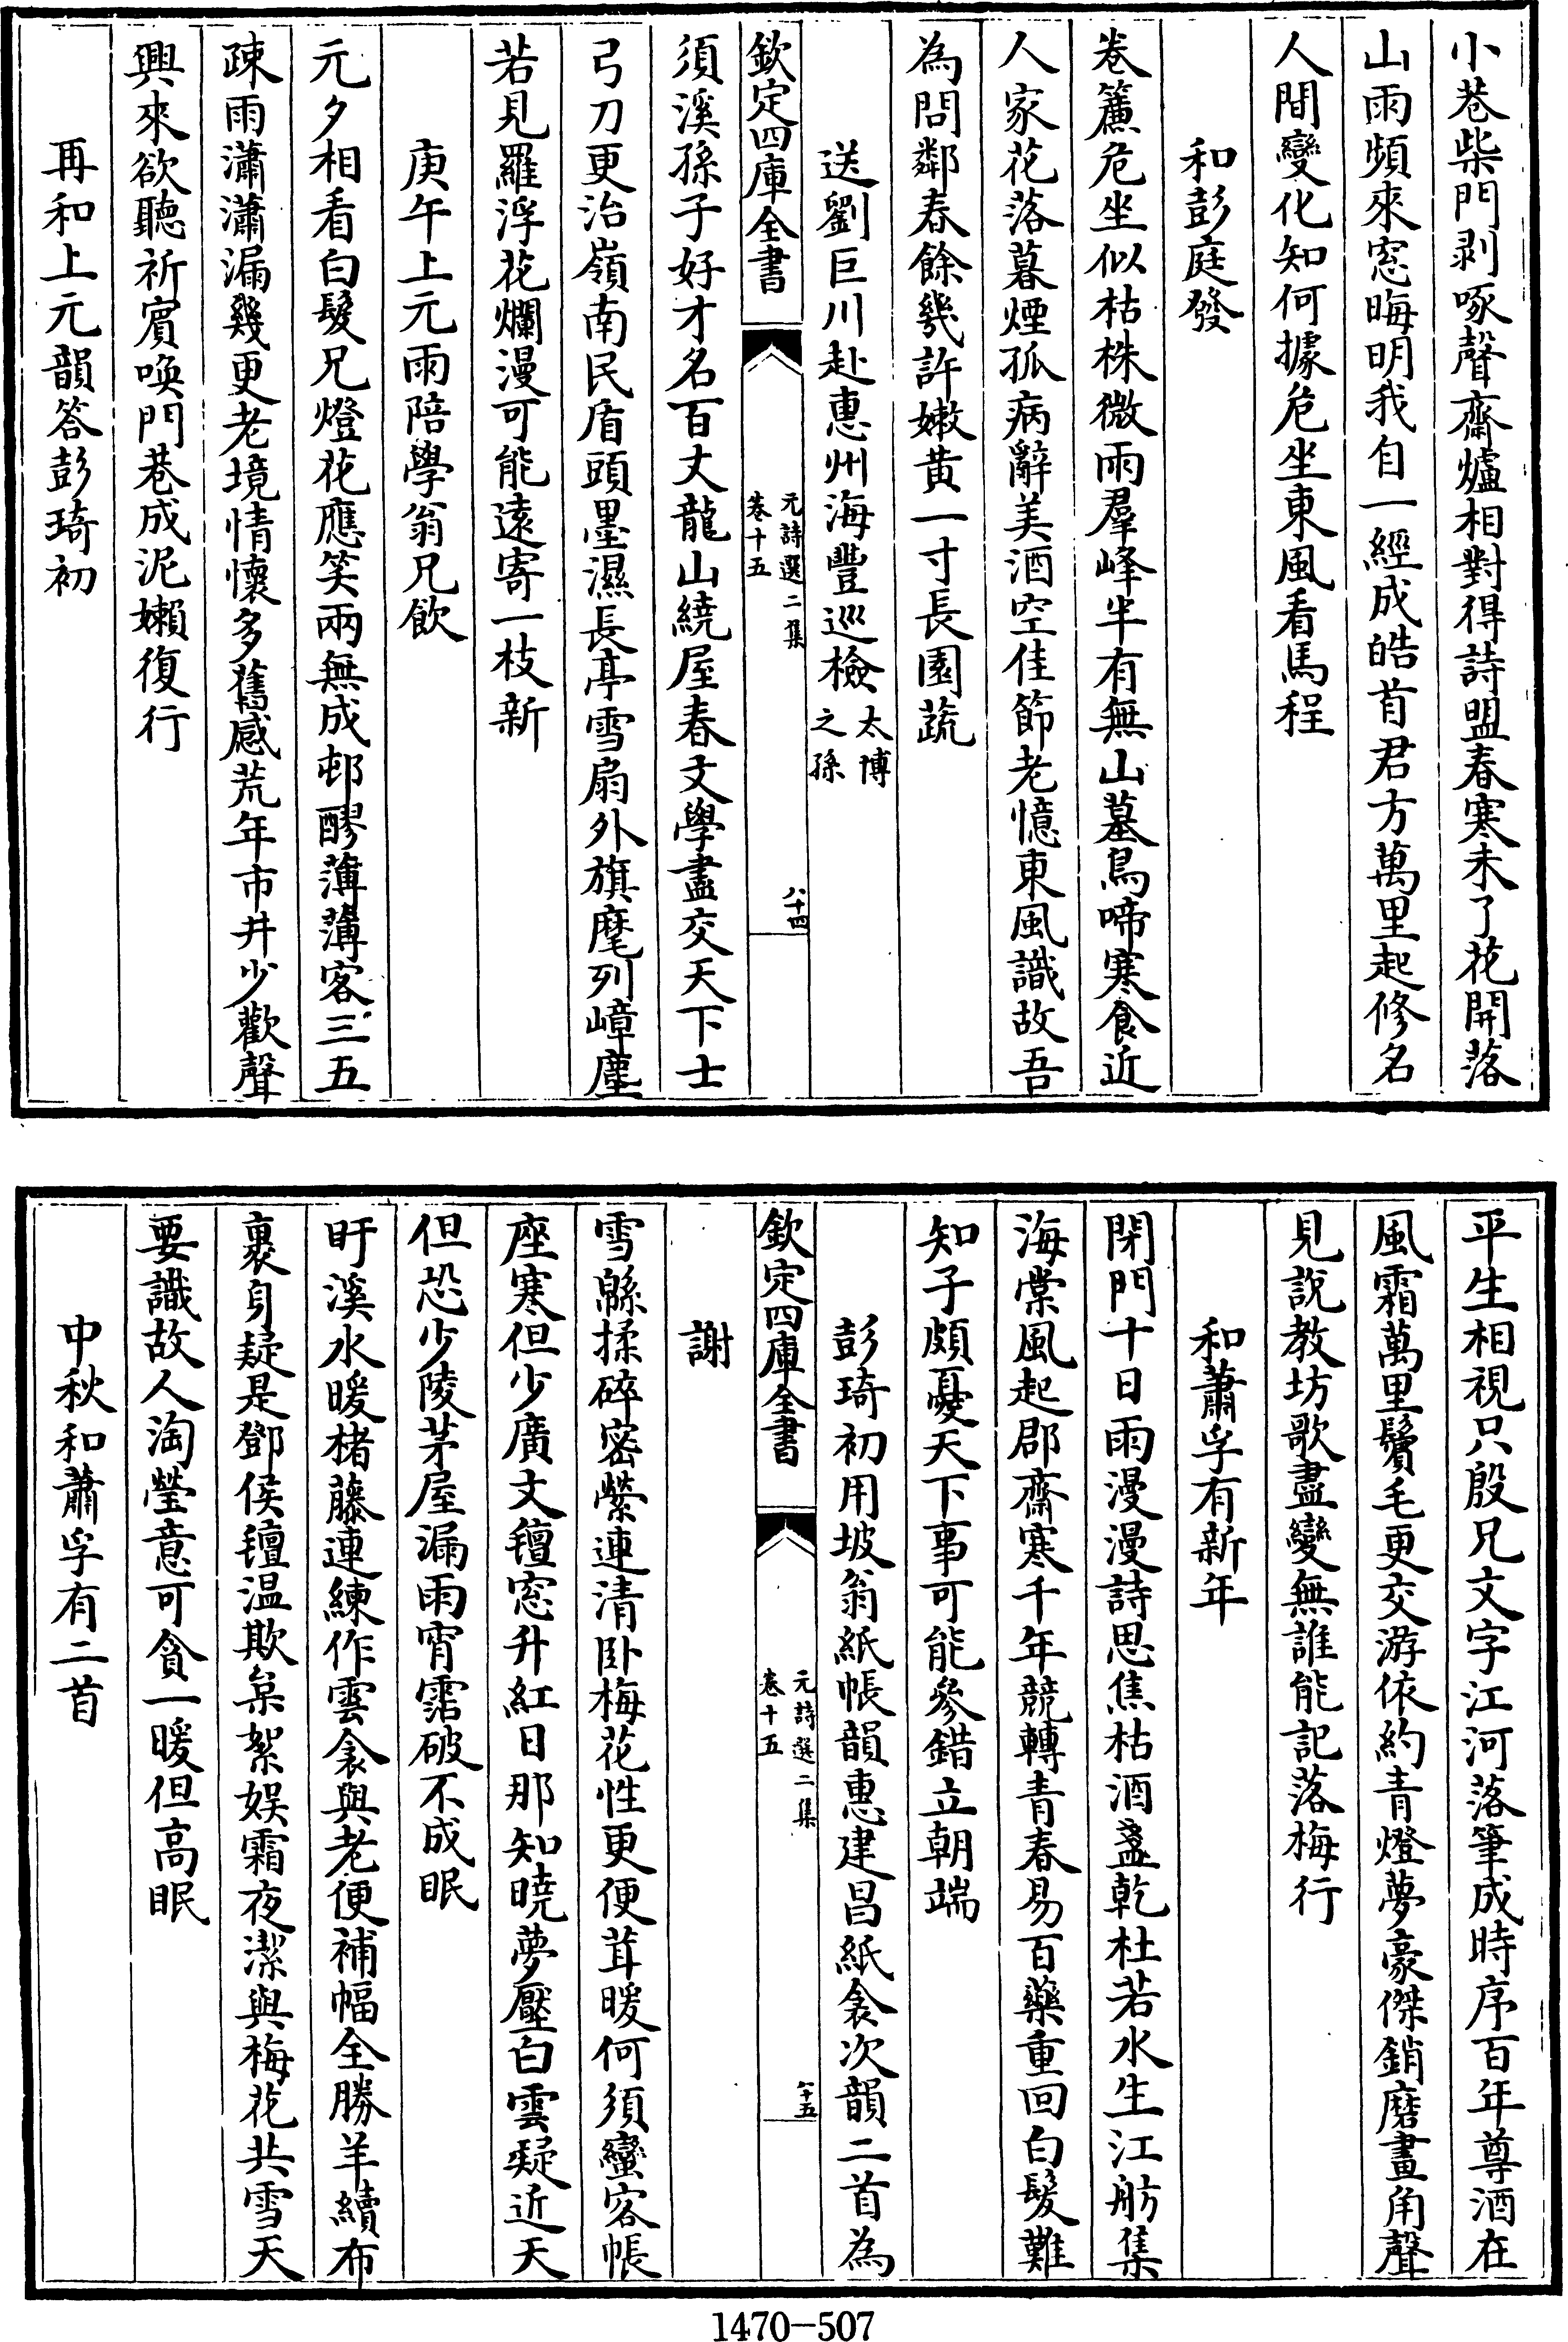 小巷柴門剥啄聲齋爐相對得詩盟春寒未了花開落
山雨頻來窓晦明我自一經成皓首君方萬里起修名
人間變化知何據危坐東風看馬程
和彭庭發
卷簾危坐似枯株微雨羣峰半有無山墓鳥啼寒食近
人家花落暮煙孤病辭美酒空佳節老憶東風識故吾
為問鄰春餘幾許嫩黄一寸長園蔬
送劉巨川赴惠州海豐巡檢太博之孫
欽定四庫全書
元詩選二集
卷十五
八十四
須溪孫子好才名百丈龍山繞屋春文學盡交天下士
弓刀更治嶺南民盾頭墨濕長亭雪扇外旗麾列嶂塵
若見羅浮花爛漫可能逺寄一枝新
庚午上元雨陪學翁兄飲
元夕相看白髮兄燈花應笑兩無成邨醪薄薄客三五
疎雨瀟瀟漏幾更老境情懷多舊感荒年市井少歡聲
興來欲聽祈賓喚門巷成泥嬾復行
再和上元韻答彭琦初
平生相視只殷兄文字江河落筆成時序百年尊酒在
風霜萬里鬢毛更交游依約青燈夢豪傑銷磨畫角聲
見說教坊歌盡變無誰能記落梅行
和蕭孚有新年
閉門十日雨漫漫詩思焦枯酒盞乾杜若水生江舫集
海棠風起郡齋寒千年競轉青春易百藥重回白髮難
知子頗憂天下事可能參錯立朝端
彭琦初用坡翁紙帳韻惠建昌紙衾次韻二首為
欽定四庫全書
元詩選二集
卷十五
八十五
謝
雪緜揉碎密縈連清卧梅花性更便茸暖何須蠻客帳
座寒但少廣文氊窓升紅日那知曉夢壓白雲疑近天
但恐少陵茅屋漏雨宵霑破不成眠
盱溪水暖楮藤連練作雲衾與老便補幅全勝羊續布
裹身疑是鄧侯氊温欺枲絮娱霜夜潔與梅花共雪天
要識故人淘瑩意可貪一暖但高眠
中秋和蕭孚有二首
1470-507